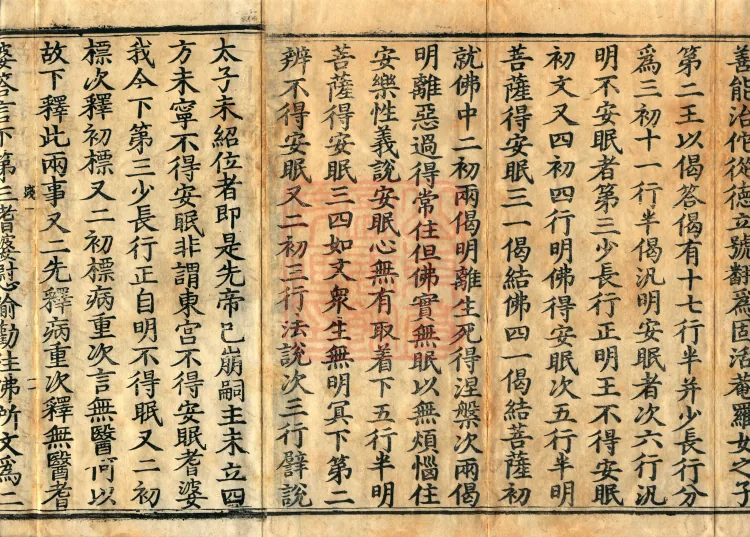 善能治他從德立號翻爲固活菴羅女之子
第二王以偈答偈有十七行半并少長行分
爲三初十一行半偈汎明安眠者次六行汎
明不安眠者第三少長行正明王不得安眠
初文又四初四行明佛得安眠次五行半明
菩薩得安眠三一偈結佛四一偈結菩薩初
就佛中二初兩偈明離生死得涅槃次兩偈
明離惡過得常住但佛實無眠以無煩惱住
安樂性義說安眠心無有取着下五行半明
菩薩得安眠三四如文衆生無明冥下第二
辨不得安眠又二初三行法說次三行譬說
太子未紹位者即是先帝已崩嗣主未立四
方未寧不得安眠非謂東宮不得安眠耆婆
我今下第三少長行正自明不得眠又二初
標次釋初標又二初標病重次言無醫何以
故下釋此兩事又二先釋病重次釋無醫耆
婆答言下第三耆婆慰喻勸往佛所文爲二